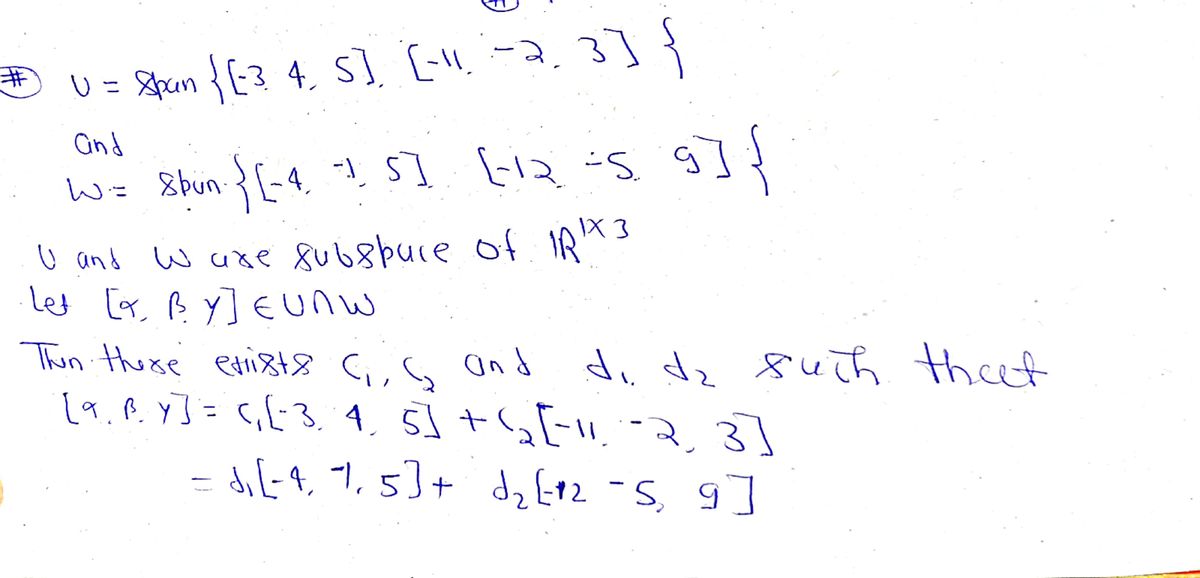 # U = Span {[-3, 4, 5], [-11, -2, 3]}
and
W = Span {[-4, -1, 5] [-12 -5, 9]}
U and W are subspace of ℝ^1×3
Let [α, β, γ] ∈ U ∩ W
Then there exists c₁, c₂ and d₁, d₂ such that
[α, β, γ] = c₁[-3, 4, 5] + c₂[-11, -2, 3]
= d₁[-4, -1, 5] + d₂[-12 -5, 9]